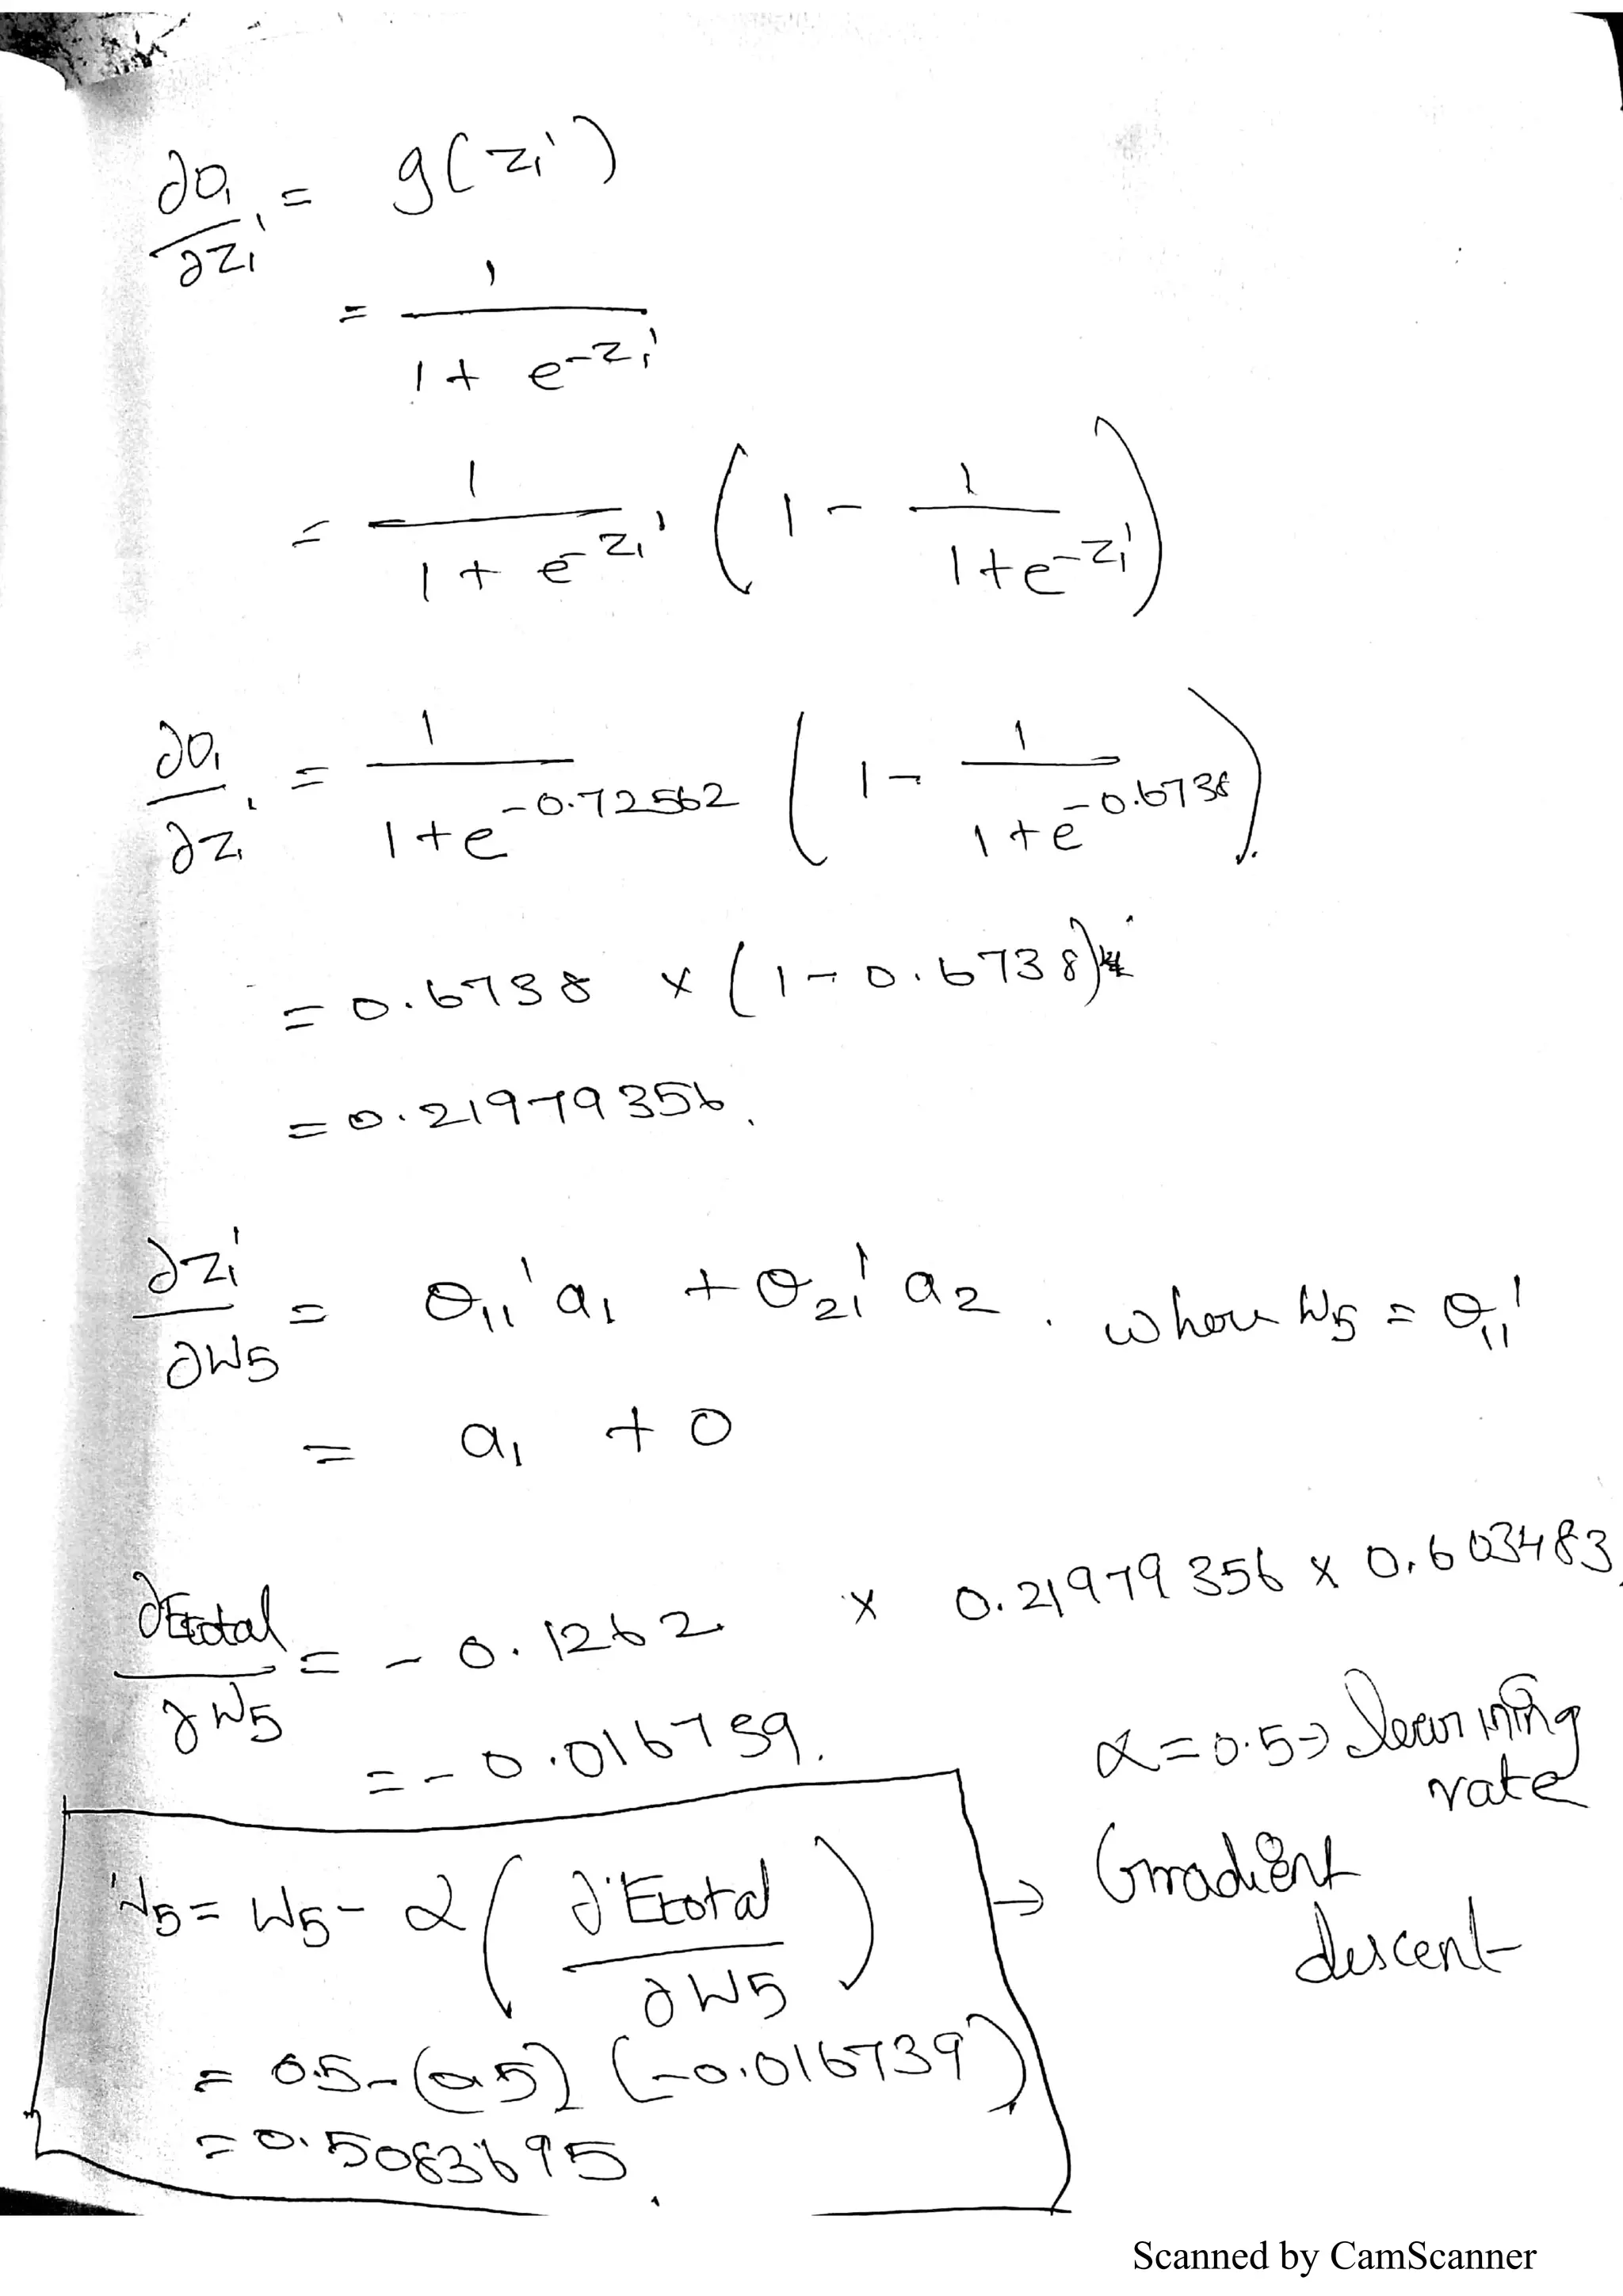 ∂o₁/∂z₁' = g(z₁')
= 1/(1 + e^(-z₁'))
= 1/(1 + e^(-z₁')) (1 - 1/(1+e^(-z₁')))
∂o₁/∂z₁' = 1/(1+e^(-0.72562)) (1 - 1/(1+e^(-0.6738)))
= 0.6738 x (1 - 0.6738)
= 0.21979356.
∂z₁'/∂W5 = θ₁₁' a₁ + θ₂₁' a₂. where W5 = θ₁₁'
= a₁ + 0
∂Etotal/∂W5 = - 0.1262 x 0.21979356 x 0.603483
= - 0.016739.
α = 0.5 → learning rate
W5 = W5 - α (∂Etotal/∂W5) → Gradient descent
= 0.5 - (0.5) (-0.016739)
= 0.5083695.
Scanned by CamScanner